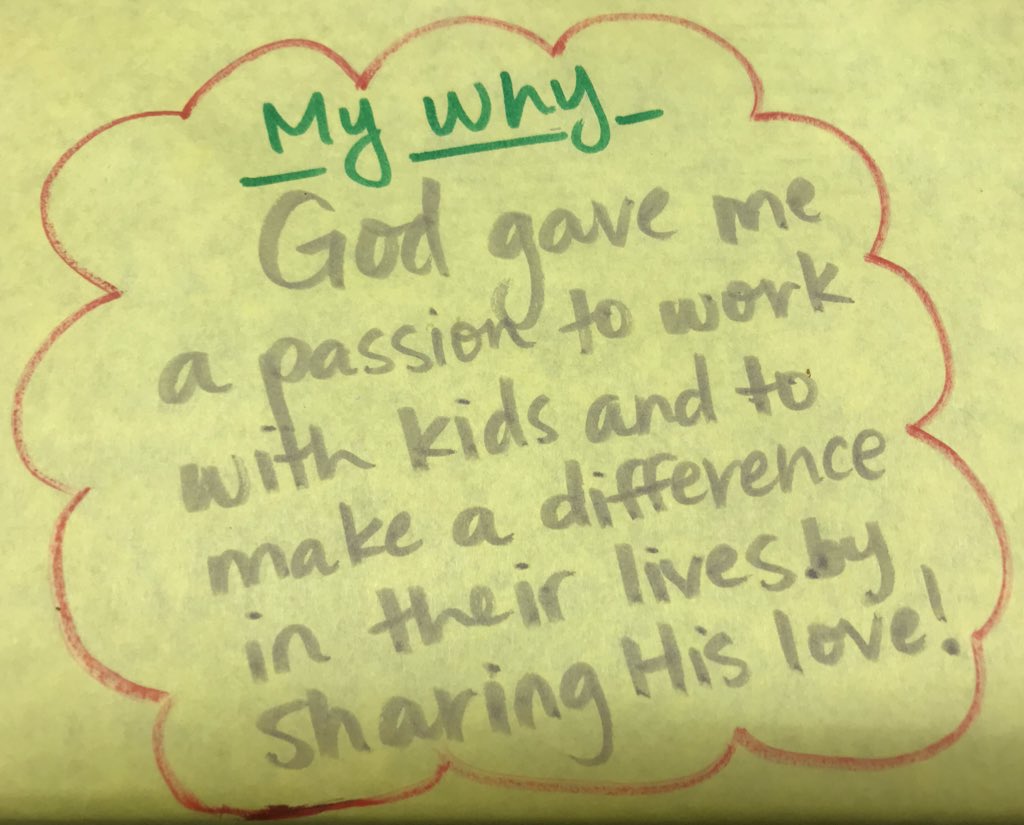 My why
God gave me
a passion to work
with kids and to
make a difference
in their lives by
sharing His love!